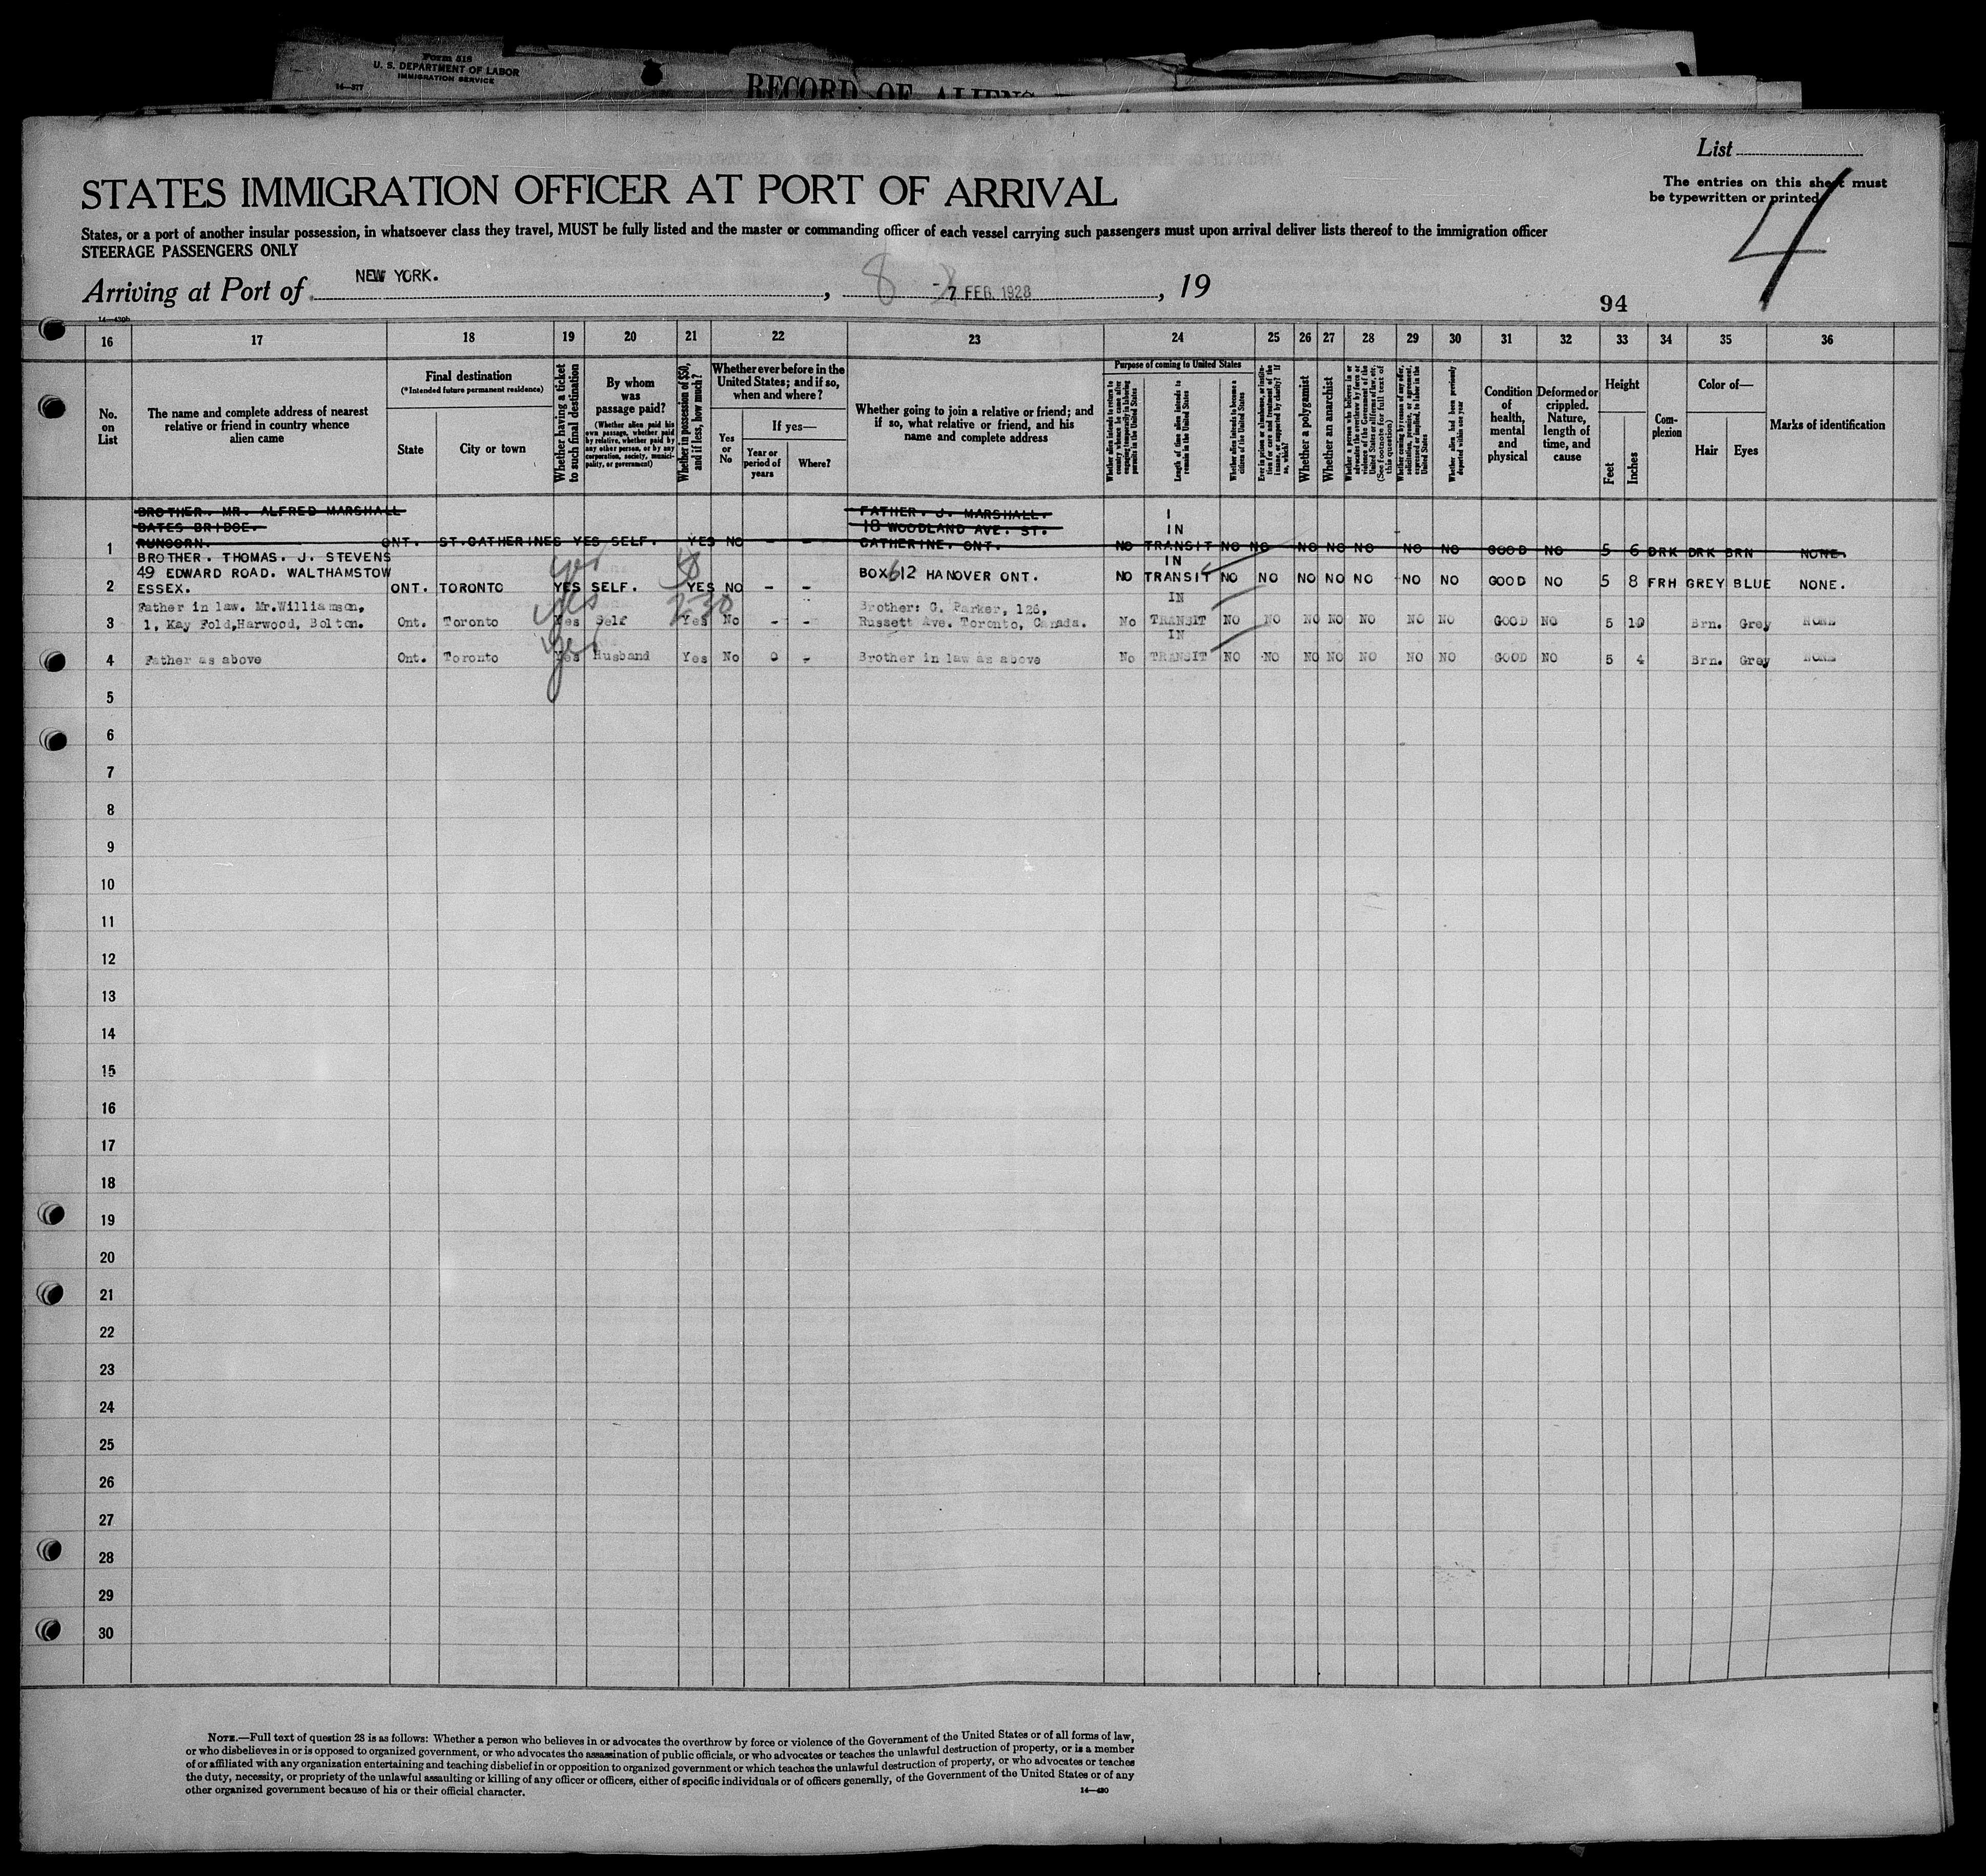 Form 519
U. S. DEPARTMENT OF LABOR
IMMIGRATION SERVICE
14—577
RECORD OF ALIENS
List
The entries on this sheet must
be typewritten or printed
4
STATES IMMIGRATION OFFICER AT PORT OF ARRIVAL
States, or a port of another insular possession, in whatsoever class they travel, MUST be fully listed and the master or commanding officer of each vessel carrying such passengers must upon arrival deliver lists thereof to the immigration officer
STEERAGE PASSENGERS ONLY
Arriving at Port of NEW YORK. , 8 -7 FEB 1928 , 19
94
14—430b
16 17 18 19 20 21 22 23 24 25 26 27 28 29 30 31 32 33 34 35 36
No.
on
List
The name and complete address of nearest
relative or friend in country whence
alien came
Final destination
(*Intended future permanent residence)
State
City or town
Whether having a ticket
to such final destination
By whom
was
passage paid?
(Whether alien paid his
own passage, whether paid
by relative, whether paid by
any other person, or by any
corporation, society, munici-
pality, or government)
Whether in possession of $50,
and if less, how much?
Whether ever before in the
United States; and if so,
when and where?
Yes
or
No
If yes—
Year or
period of
years
Where?
Whether going to join a relative or friend; and
if so, what relative or friend, and his
name and complete address
Purpose of coming to United States
Whether alien intends to return to
country whence he came after
engaging temporarily in laboring
pursuits in the United States
Length of time alien intends to
remain in the United States
Whether alien intends to become a
citizen of the United States
Ever in prison or almshouse, or institu-
tion for care and treatment of the
insane, or supported by charity? If
so, which?
Whether a polygamist
Whether an anarchist
Whether a person who believes in or
advocates the overthrow by force or
violence of the Government of the
United States or all forms of law, etc.
(See footnote for full text of
this question)
Whether coming by reason of any offer,
solicitation, promise, or agreement,
expressed or implied, to labor in the
United States
Whether alien had been previously
deported within one year
Condition
of
health,
mental
and
physical
Deformed or
crippled.
Nature,
length of
time, and
cause
Height
Feet
Inches
Com-
plexion
Color of—
Hair
Eyes
Marks of identification
BROTHER. MR. ALFRED MARSHALL FATHER. J. MARSHALL. I
BATES BRIDGE. 18 WOODLAND AVE. ST. IN
1 RUNCORN. ONT. ST.CATHERINES YES SELF. YES NO - - CATHERINE. ONT. NO TRANSIT NO NO NO NO NO NO NO GOOD NO 5 6 DRK DRK BRN NONE.
BROTHER. THOMAS. J. STEVENS yes IN
49 EDWARD ROAD. WALTHAMSTOW BOX 612 HANOVER ONT.
2 ESSEX. ONT. TORONTO YES SELF. YES NO - - NO TRANSIT NO NO NO NO NO NO NO GOOD NO 5 8 FRH GREY BLUE NONE.
Father in law. Mr.Williamson, yes 230 Brother: G. Parker, 126, IN
3 1, Kay Fold,Harwood, Bolton. Ont. Toronto Yes Self Yes No - - Russett Ave. Toronto, Canada. No TRANSIT NO NO NO NO NO NO NO GOOD NO 5 10 Brn. Grey NONE
yes IN
4 Father as above Ont. Toronto Yes Husband Yes No 0 - Brother in law as above No TRANSIT NO NO NO NO NO NO NO GOOD NO 5 4 Brn. Grey NONE
5
6
7
8
9
10
11
12
13
14
15
16
17
18
19
20
21
22
23
24
25
26
27
28
29
30
NOTE.—Full text of question 28 is as follows: Whether a person who believes in or advocates the overthrow by force or violence of the Government of the United States or of all forms of law,
or who disbelieves in or is opposed to organized government, or who advocates the assassination of public officials, or who advocates or teaches the unlawful destruction of property, or is a member
of or affiliated with any organization entertaining and teaching disbelief in or opposition to organized government or which teaches the unlawful destruction of property, or who advocates or teaches
the duty, necessity, or propriety of the unlawful assaulting or killing of any officer or officers, either of specific individuals or of officers generally, of the Government of the United States or of any
other organized government because of his or their official character.
14—430